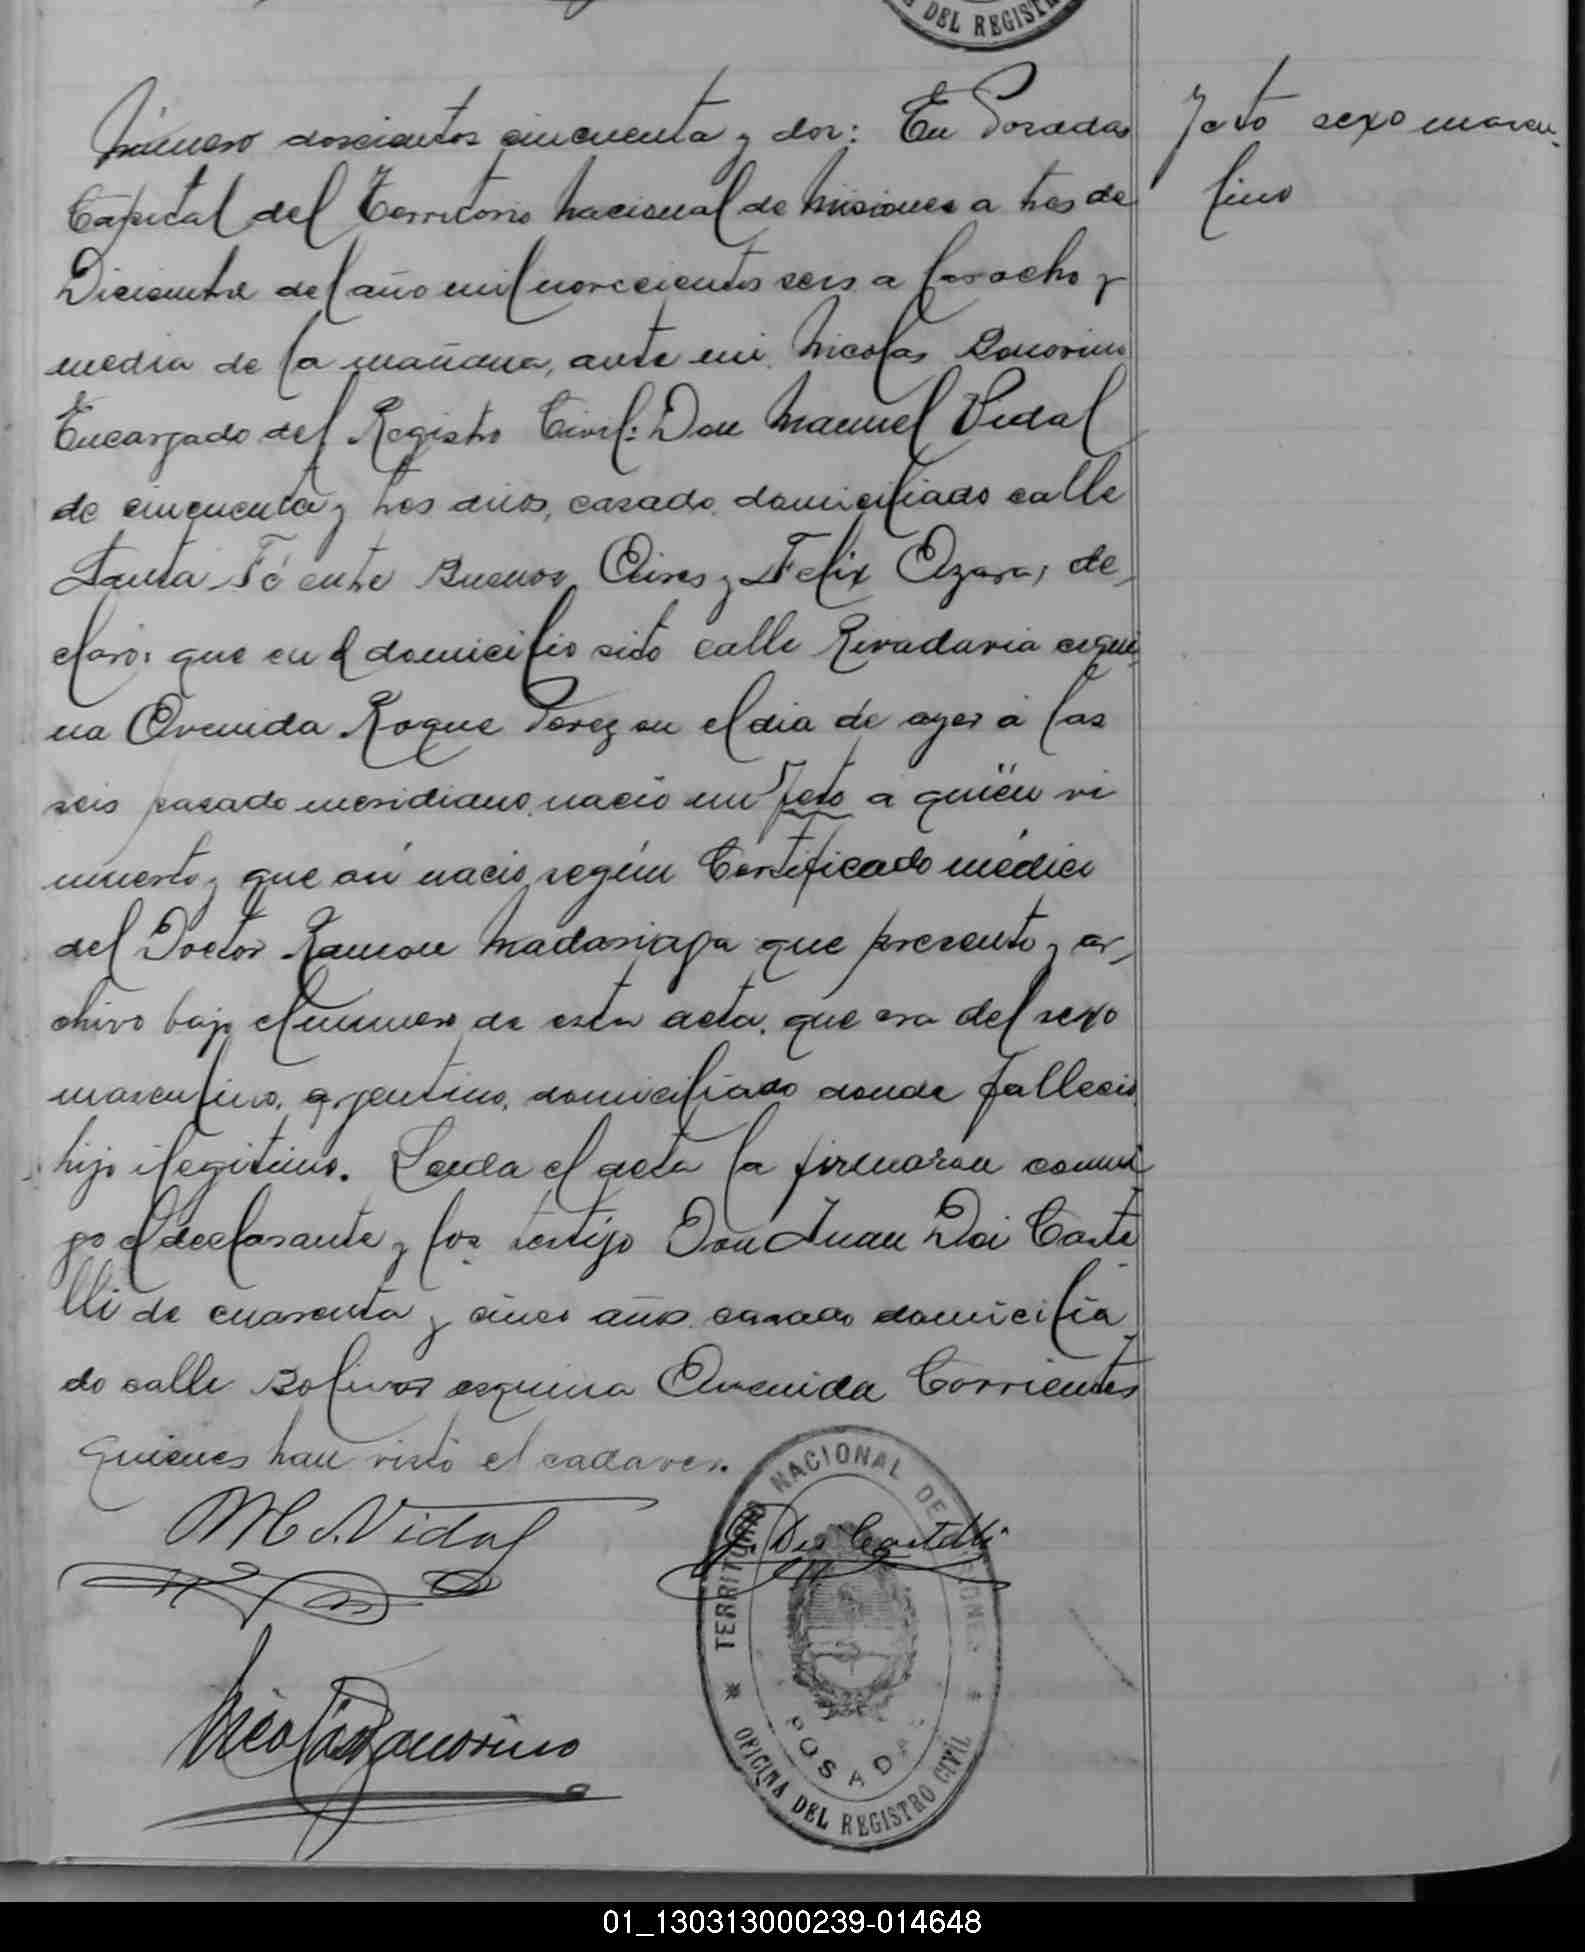 DEL REGISTR
Número doscientos cincuenta y dos: En Posadas
Capital del Territorio Nacional de Misiones a tres de
Diciembre del año mil novecientos seis a las ocho y
media de la mañana, ante mi Nicolas Bonorino
Encargado del Registro Civil: Don Manuel Vidal
de cincuenta y tres años, casado, domiciliado calle
Santa Fé entre Buenos Aires y Felix Azara, de-
claró: que en el domicilio sito calle Rivadavia esqui-
na Avenida Roque Perez en el dia de ayer á las
seis pasado meridiano, nació un feto a quien vi
muerto y que así nació según Certificado médico
del Doctor Ramon Madariaga que presento y ar-
chivo bajo el numero de esta acta, que era del sexo
masculino, argentino, domiciliado donde falleció,
hijo ilegitimo. Leida el acta la firmaron conmi
go el declarante y los testigo Don Juan Dei Caste
lli de cuarenta y cinco años casado domicilia
do calle Bolivar esquina Avenida Corrientes
quienes han visto el cadaver.
M. Vidal
J. Dei Castelli
Nicolás Bonorino
Feto sexo mascu-
lino
TERRITORIO NACIONAL DE MISIONES
POSADAS
OFICINA DEL REGISTRO CIVIL
01_130313000239-014648